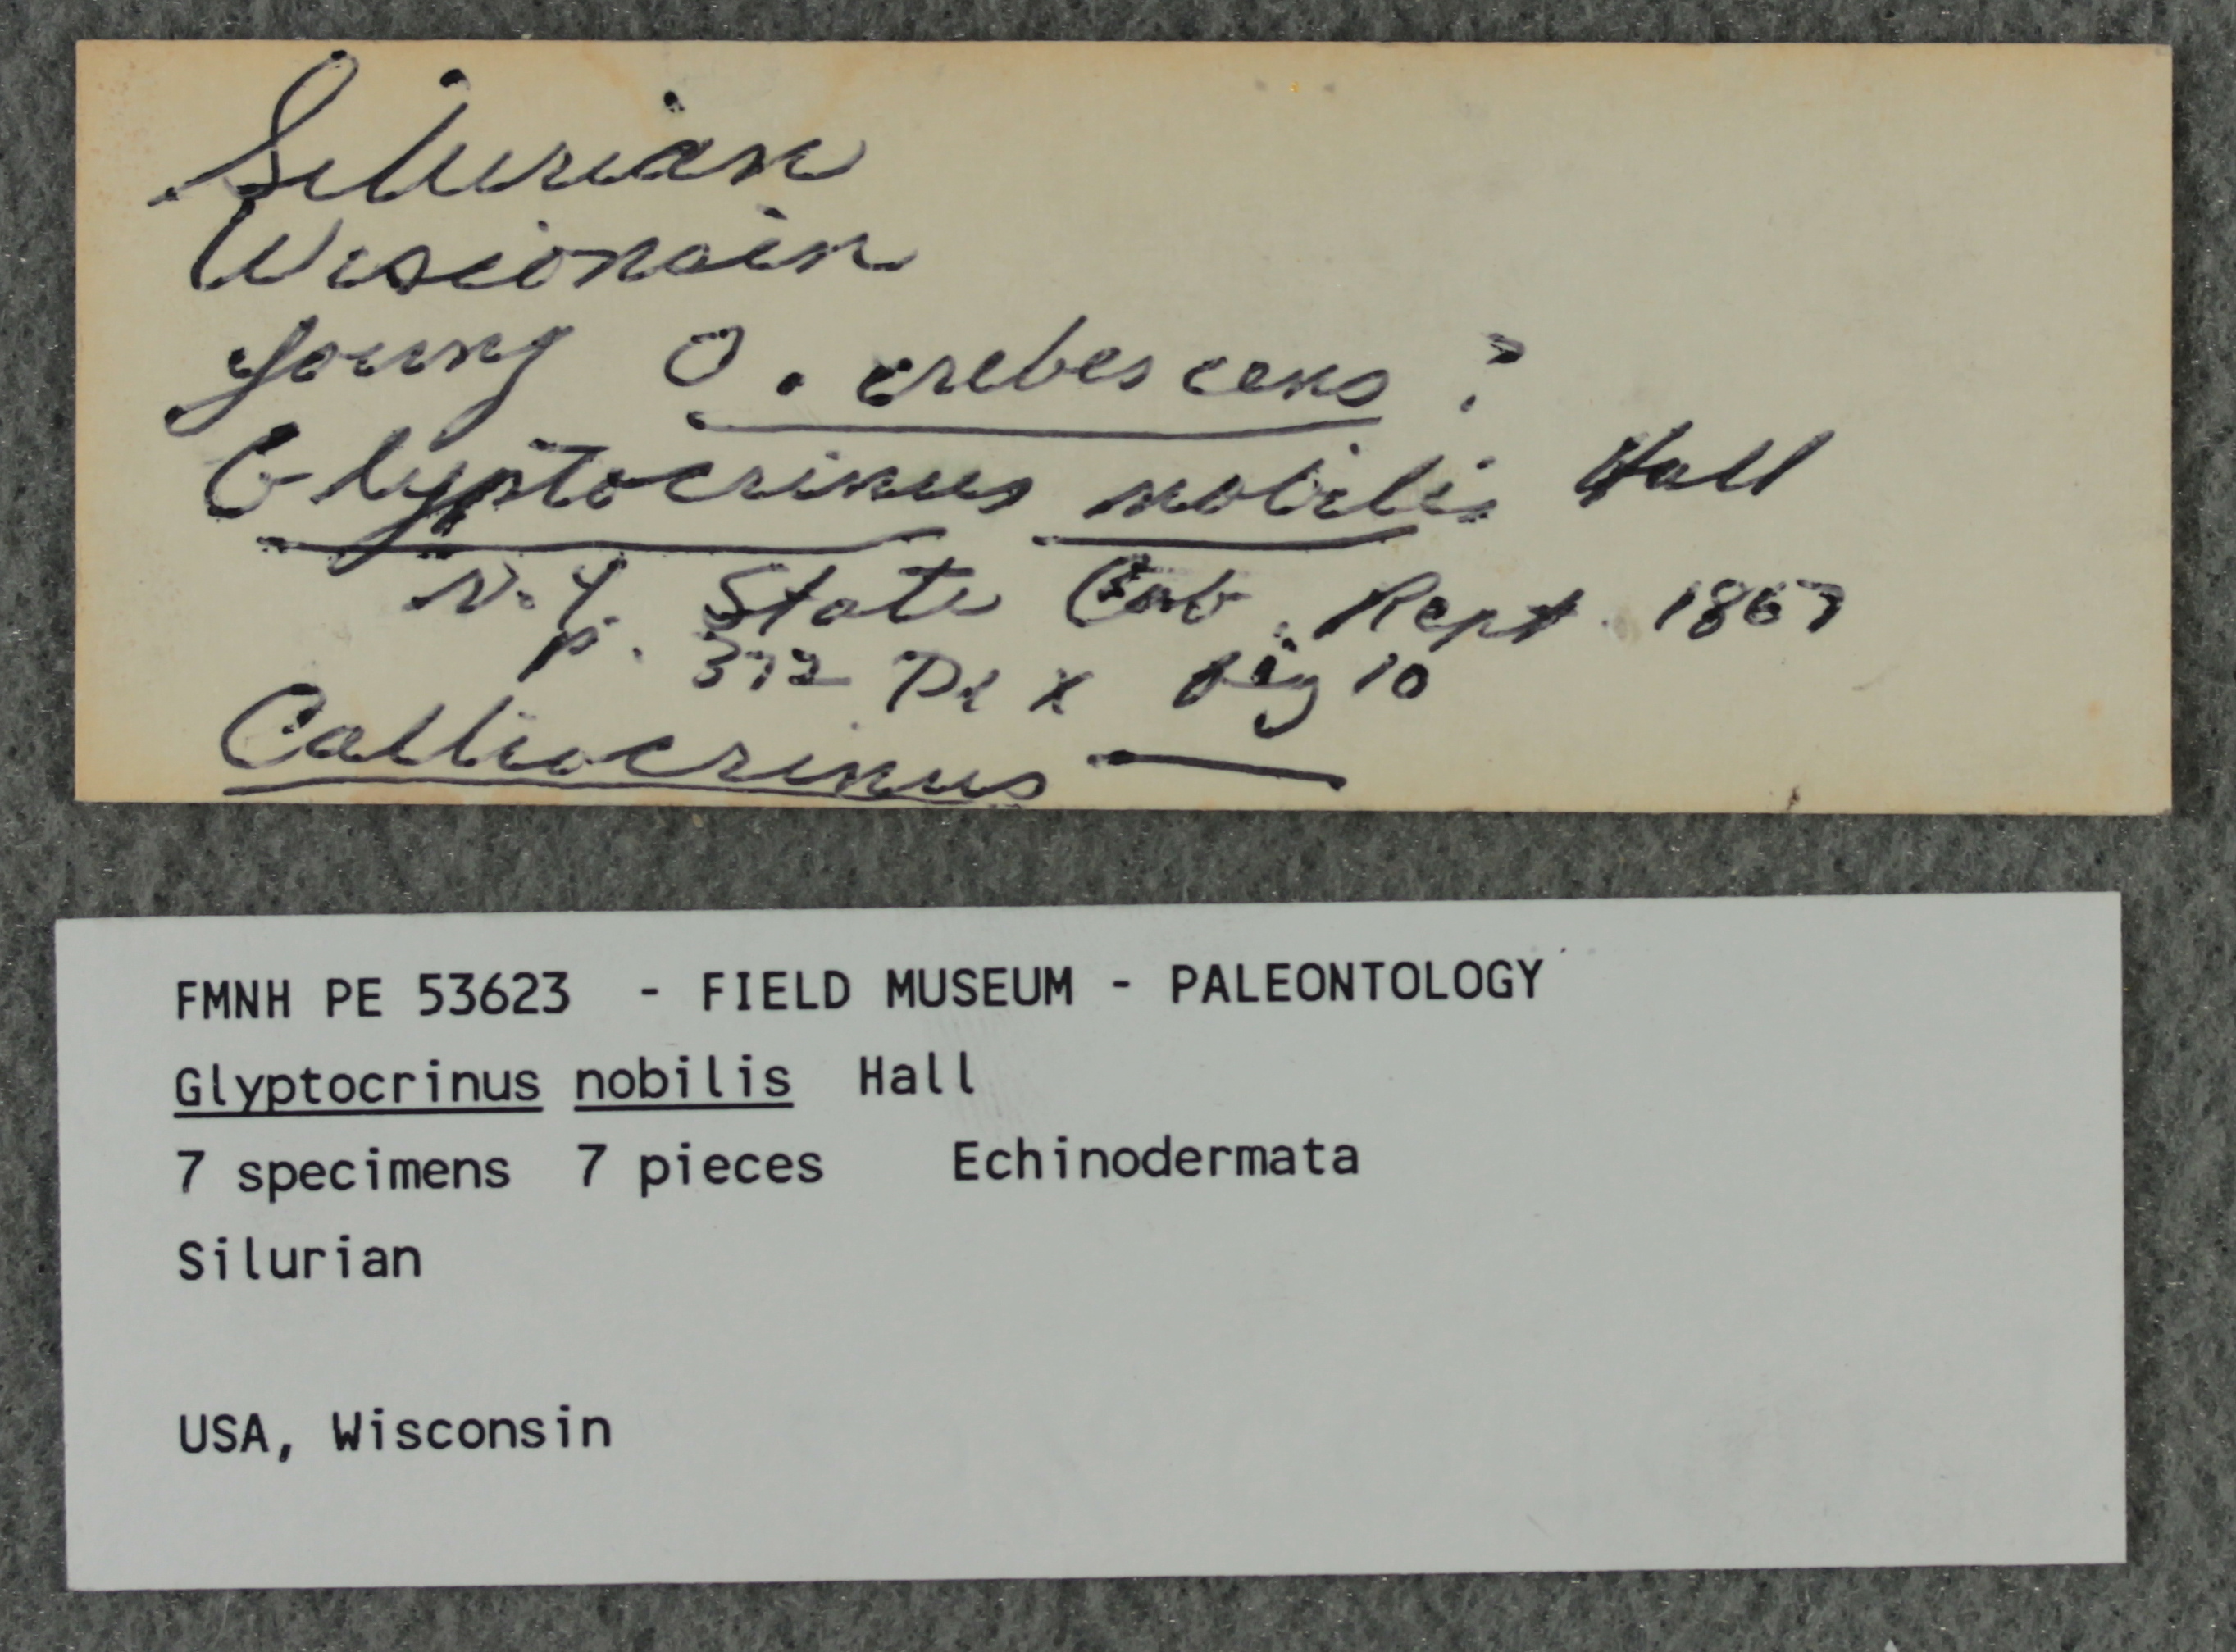 Silurian
Wisconsin
young O. crebescens ?
Glyptocrinus nobilis Hall
N.Y. State Cab. Rept. 1867
p. 372 Pl X fig 10
Calliocrinus —
FMNH PE 53623 - FIELD MUSEUM - PALEONTOLOGY
Glyptocrinus nobilis Hall
7 specimens 7 pieces Echinodermata
Silurian
USA, Wisconsin